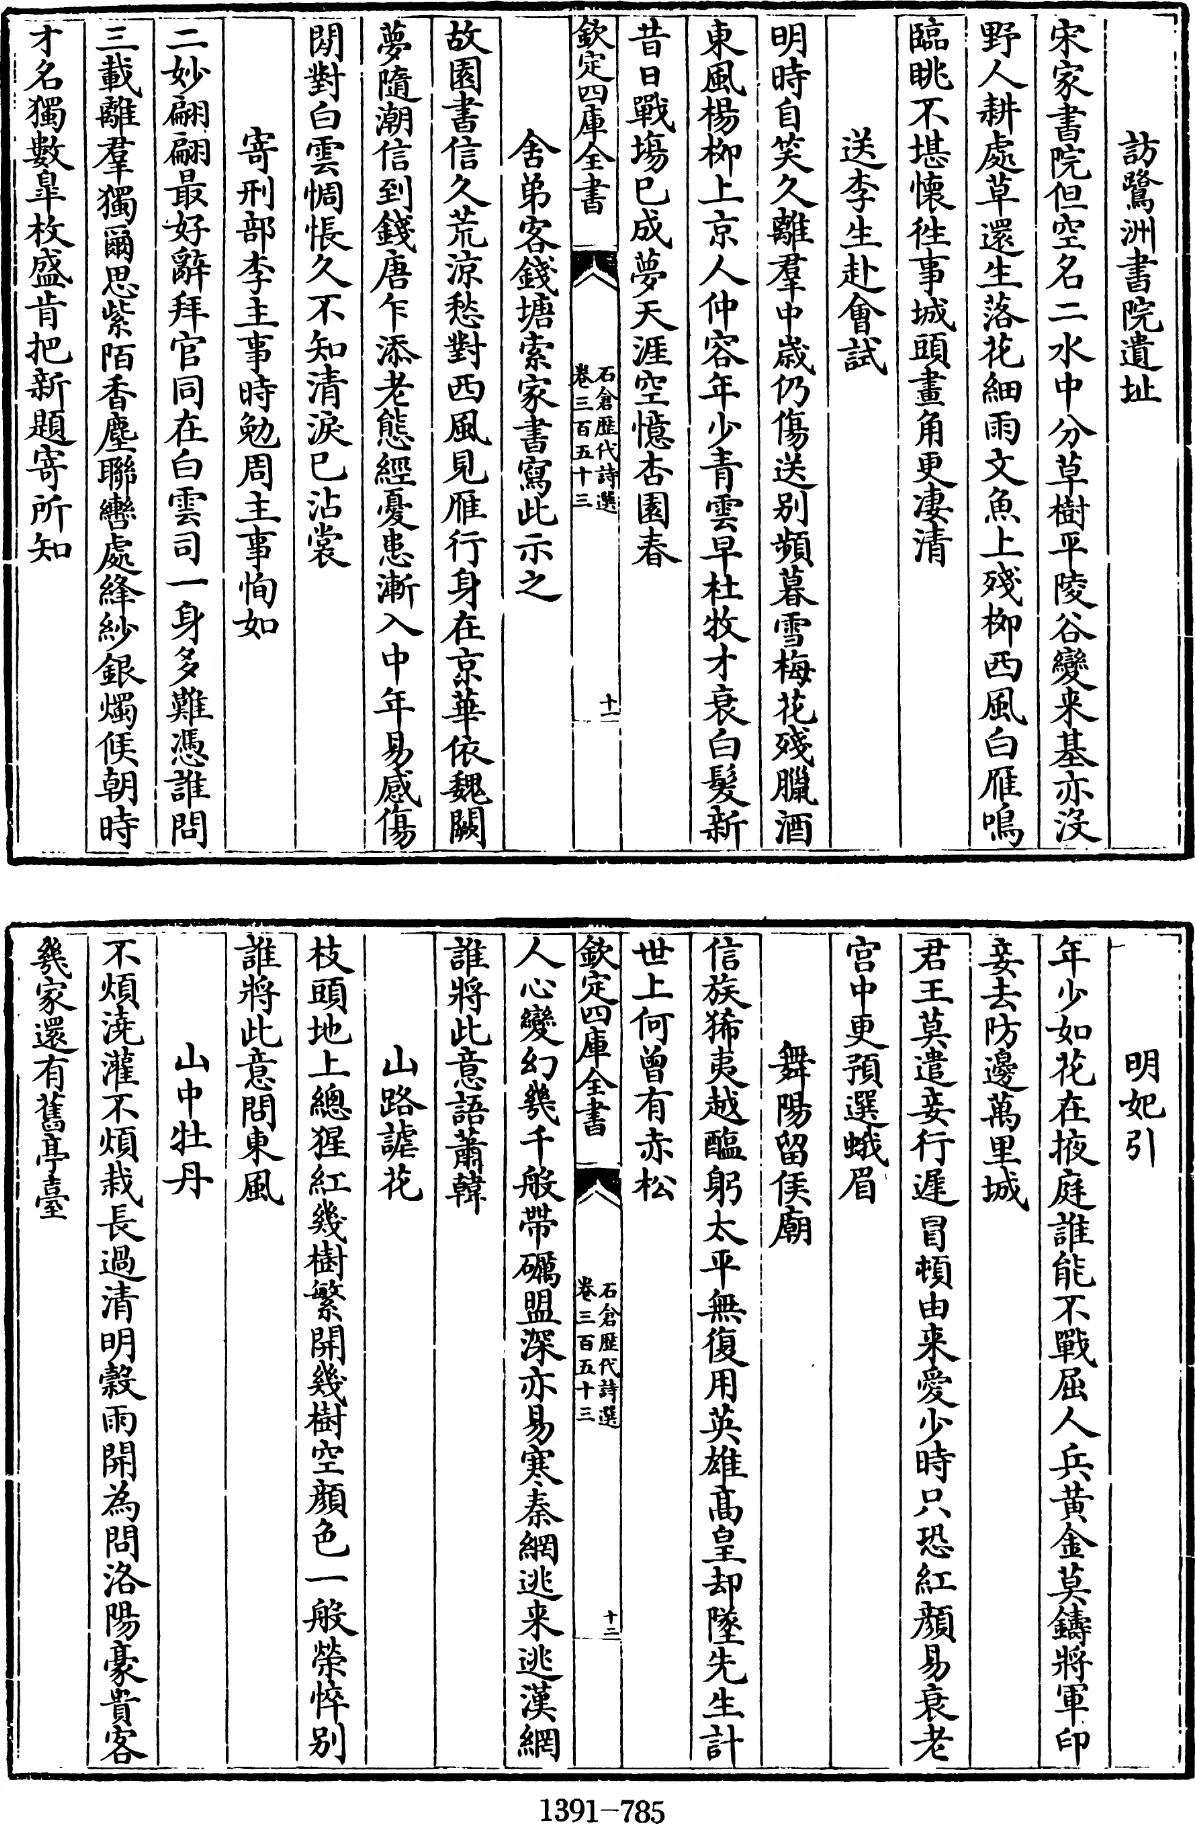 訪鷺洲書院遺址
宋家書院但空名二水中分草樹平陵谷變来基亦沒
野人耕處草還生落花細雨文魚上殘栁西風白雁鳴
臨眺不堪懷徃事城頭畫角更凄清
送李生赴會試
明時自笑久離羣中歳仍傷送别頻暮雪梅花殘臘酒
東風楊栁上京人仲容年少青雲早杜牧才衰白髮新
昔日戰場已成夢天涯空憶杏園春
欽定四庫全書
石倉歴代詩選
卷三百五十三
十一
舍弟客錢塘索家書寫此示之
故園書信久荒凉愁對西風見雁行身在京華依魏闕
夢隨潮信到錢唐乍添老態經憂患漸入中年易感傷
閒對白雲惆悵久不知清淚已沾裳
寄刑部李主事時勉周主事恂如
二妙翩翩最好辭拜官同在白雲司一身多難憑誰問
三載離羣獨爾思紫陌香塵聯轡處絳紗銀燭候朝時
才名獨數臯枚盛肯把新題寄所知
明妃引
年少如花在掖庭誰能不戰屈人兵黄金莫鑄將軍印
妾去防邊萬里城
君王莫遣妾行遲冒頓由来愛少時只恐紅顔易衰老
宫中更預選蛾眉
舞陽留侯廟
信族狶夷越醢躬太平無復用英雄髙皇却墜先生計
世上何曾有赤松
欽定四庫全書
石倉歴代詩選
卷三百五十三
十二
人心變幻幾千般帶礪盟深亦易寒秦網逃来逃漢網
誰將此意語蕭韓
山路謔花
枝頭地上總猩紅幾樹繁開幾樹空顔色一般榮悴别
誰將此意問東風
山中牡丹
不煩澆灌不煩栽長過清明穀雨開為問洛陽豪貴客
幾家還有舊亭臺
1391-785